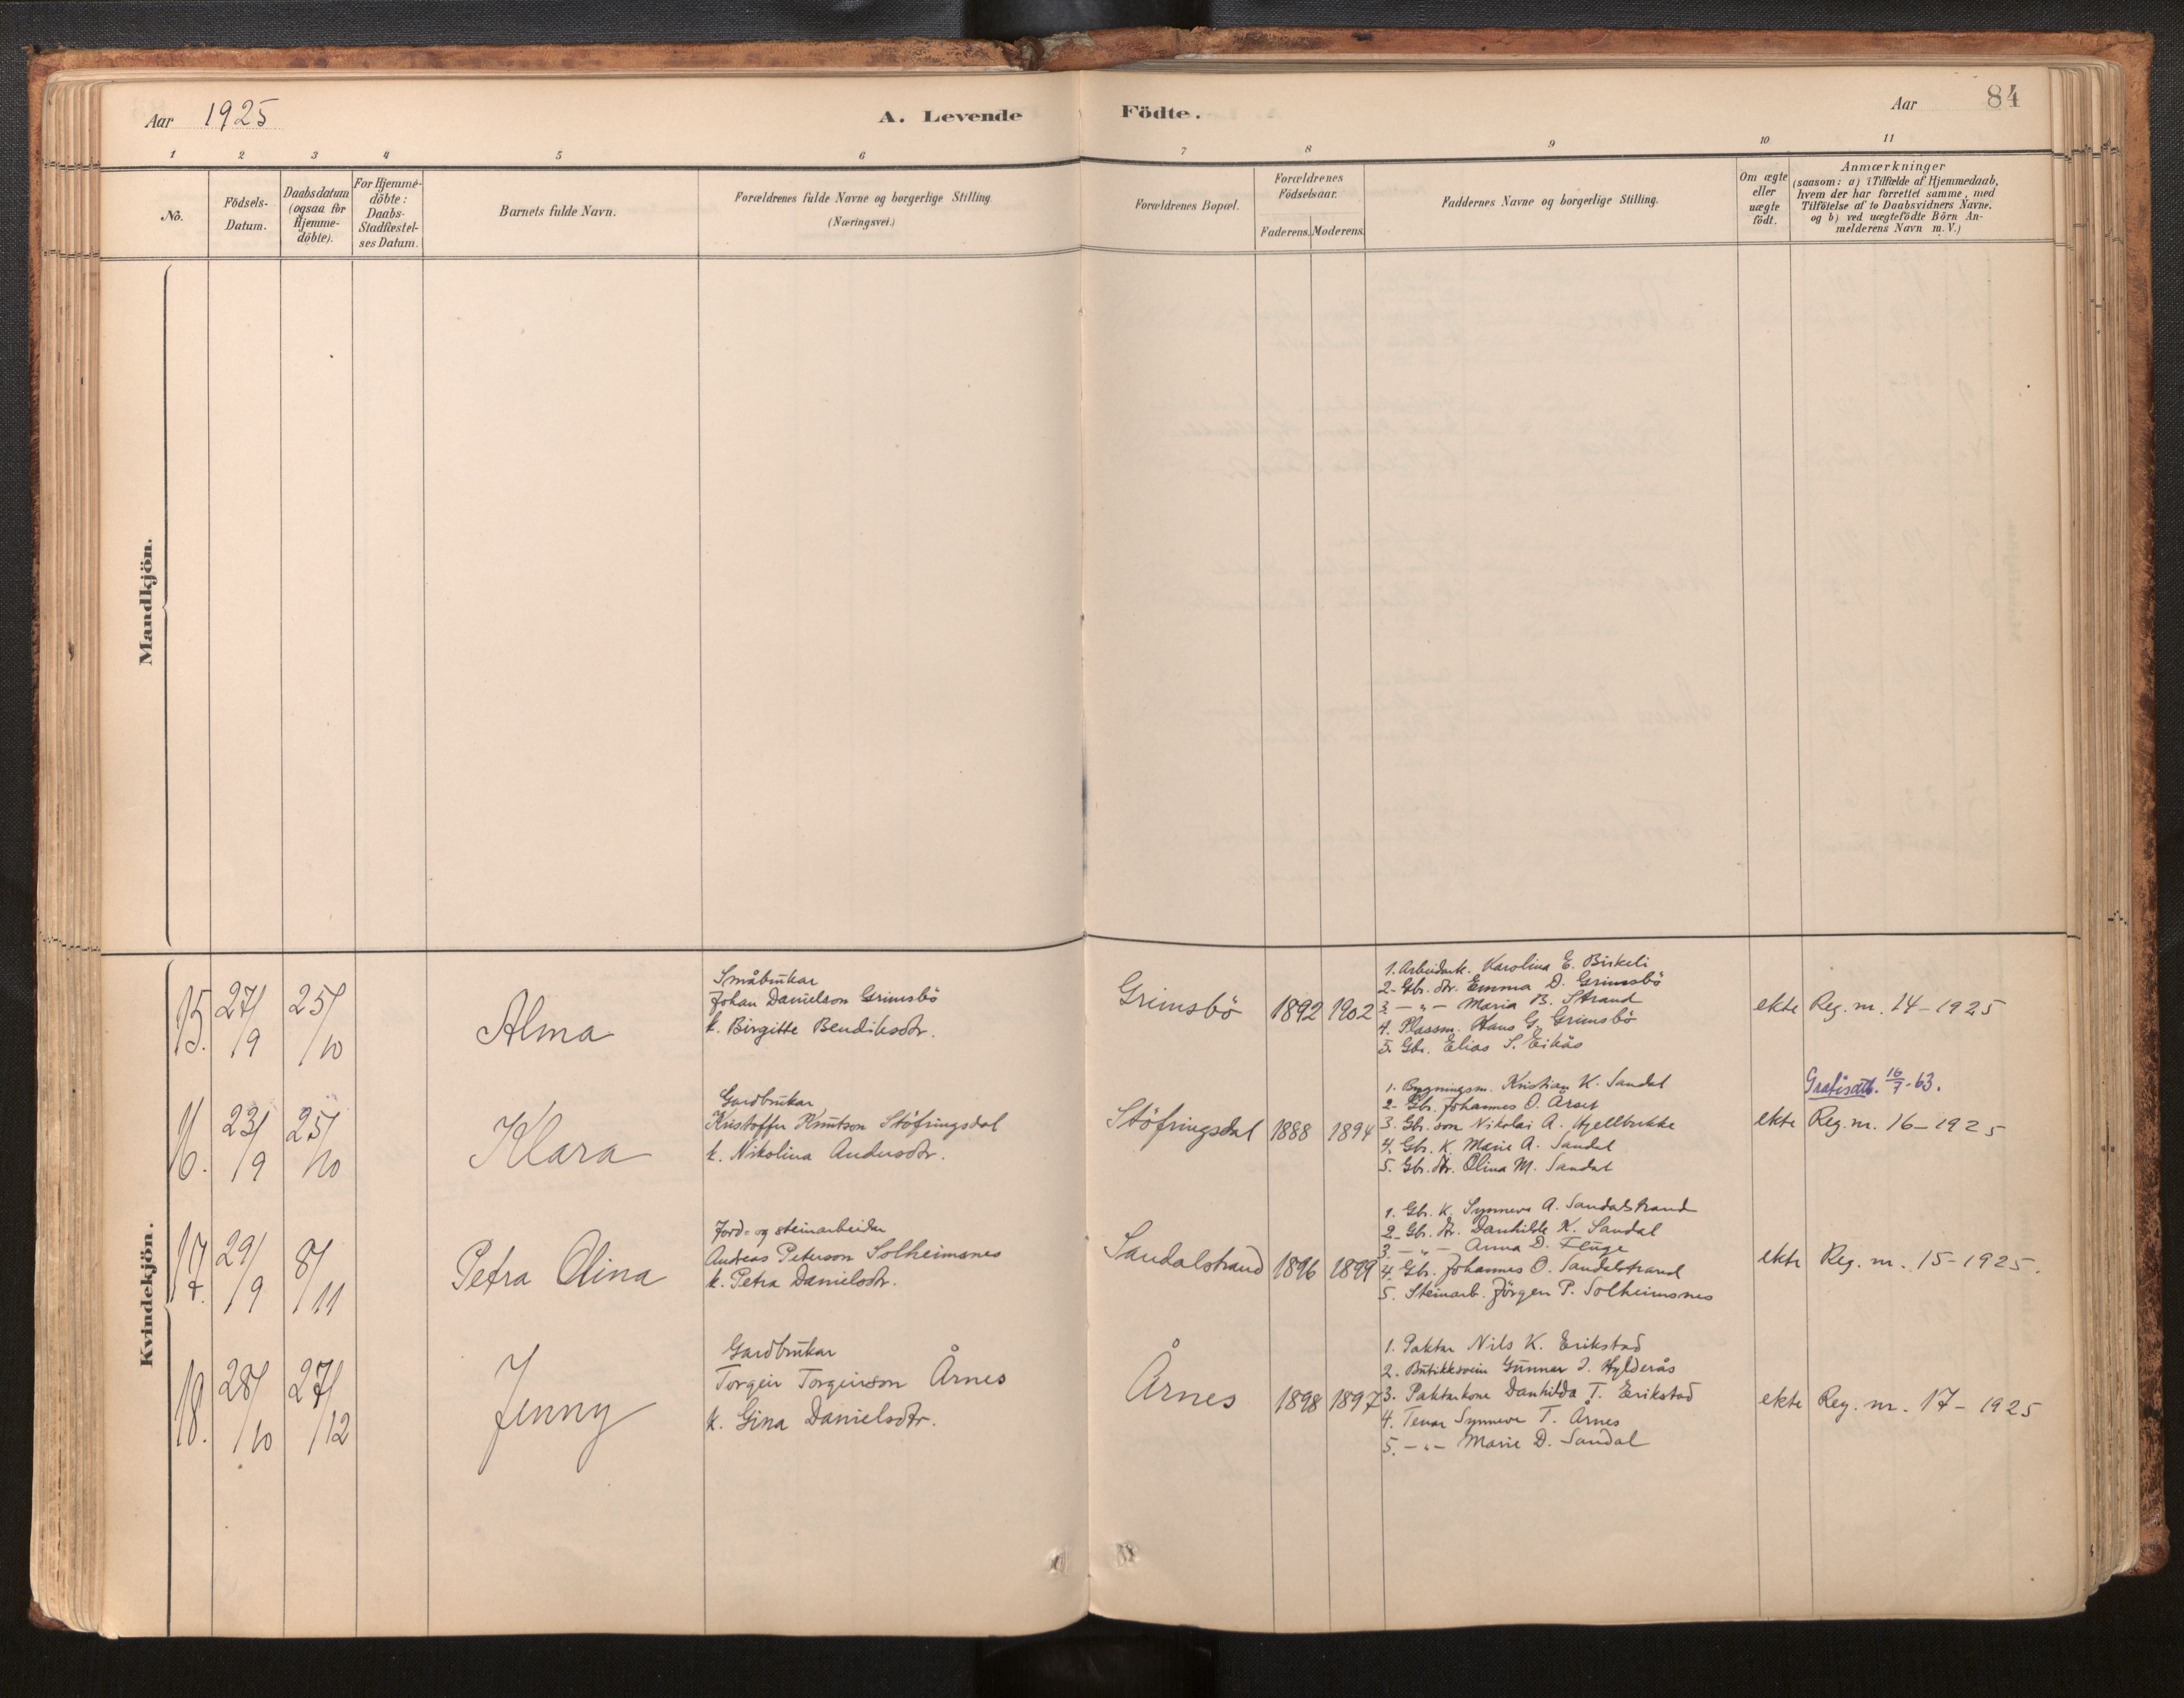 Aar 1925
A. Levende Födte.
Aar 84
1 2 3 4 5 6 7 8 9 10 11
No.
Födsels-Datum.
Daabsdatum (ogsaa for Hjemme-döbte).
For Hjemme-döbte: Daabs-Stadfæstel-ses Datum.
Barnets fulde Navn.
Forældrenes fulde Navne og borgerlige Stilling.
(Næringsvei.)
Forældrenes Bopæl.
Forældrenes Födselsaar.
Faderens. Moderens.
Faddernes Navne og borgerlige Stilling.
Om ægte eller uægte födt.
Anmærkninger
(saasom: a) i Tilfælde af Hjemmedaab,
hvem der har forrettet samme, med
Tilföielse af to Daabsvidners Navne,
og b) ved uægtefödte Börn An-
melderens Navn m.V.)
Mandkjön.
Kvindekjön.
15. 27/9 25/10
Alma
Småbrukar
Johan Danielson Grimsbö
k. Birgitte Bendiksdtr.
Grimsbö 1892 1902
1. Arbeidark. Karolina E. Birkeli
2. Gbr. dtr. Emma D. Grimsbö
3. — " — Maria B. Strand
4. Plassm. Hans G. Grimsbö
5. Gbr. Elias S. Eikås
ekte Reg. nr. 14-1925
16. 23/9 25/10
Klara
Gardbrukar
Kristoffer Knutson Stöfringsdal
k. Nikolina Andersdtr.
Stöfringsdal 1888 1894
1. Bygningsm. Kristian K. Sandal
2. Gbr. Johannes O. Årset
3. Gbr. son Nikolai A. Hjellbrekke
4. Gbr. K. Marie A. Sandal
5. Gbr. dtr. Olina M. Sandal
Gratisatt. 16/7-63.
ekte Reg. nr. 16-1925
17. 29/9 8/11
Petra Olina
Jord- og steinarbeider
Andreas Peterson Solheimsnes
k. Petra Danielsdtr.
Sandalstrand 1896 1899
1. Gbr. K. Synneva A. Sandalstrand
2. Gbr. dtr. Danhilde K. Sandal
3. — " — Anna D. Fluge
4. Gbr. Johannes O. Sandalstrand
5. Steinarb. Jörgen P. Solheimsnes
ekte Reg. nr. 15-1925.
18. 28/10 27/12
Jenny
Gardbrukar
Torgeir Torgeirson Årnes
k. Gina Danielsdtr.
Årnes 1898 1897
1. Paktar Nils K. Erikstad
2. Butikksvein Gunnar J. Hylderås
3. Paktarkone Danhilda T. Erikstad
4. Tenar Synneve T. Årnes
5. — " — Marie D. Sandal
ekte Reg. nr. 17-1925